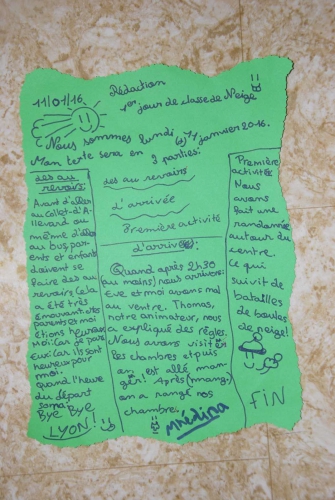 Rédaction
11/01/16.
1er jour de classe de Neige
Nous sommes lundi 11 janvier 2016.
Mon texte sera en 3 parties:
des au revoirs
L'arrivée
Première activité
des au
revoirs:
Avant d'aller
au Collet-d'A-
llevard ou
même d'aller
au bus, par-
ents et enfants
doivent se
faire des au
revoirs. Cela
a été très
émouvant. Mes
parents et moi
étions heureux
Moi car je pars
Eux car ils sont
heureux pour
moi.
quand l'heure
du départ
sonna
Bye Bye
LYON!
d'arrivée:
Quand après 2h30
(au moins) nous arrivons
Eve et moi avons mal
au ventre. Thomas,
notre animateur, nous
a expliqué des règles.
Nous avons visiter
les chambres et puis
on est allé man-
ger! Après (mang.)
on a rangé nos
chambre.
Première
activité
Nous
avons
fait une
randonnée
autour du
centre.
Ce qui
suivit de
batailles
de boules
de neige!
FIN